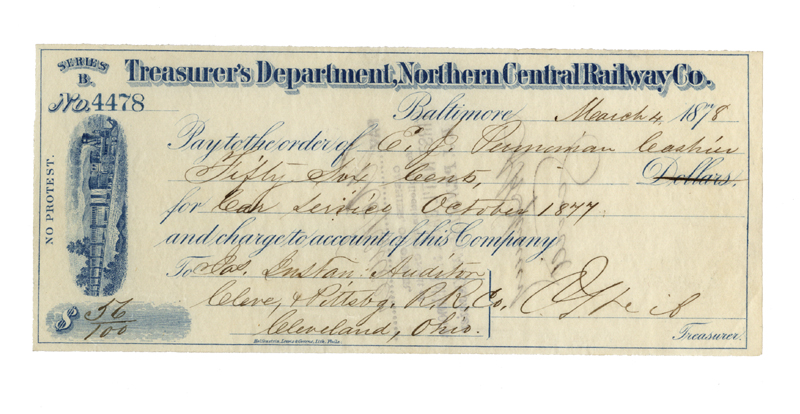 SERIES B.
Treasurer's Department, Northern Central Railway Co.
No. 4478
Baltimore March 4, 1878
Pay to the order of E. J. Penneman Cashier
Fifty Six Cents, Dollars.
for Car Service October 1877
and charge to account of this Company
To Jos. Instan. Auditor
Cleve, & Pittsbg. R.R. Co.
Cleveland, Ohio.
$ 56/100
Treasurer.
NO PROTEST.